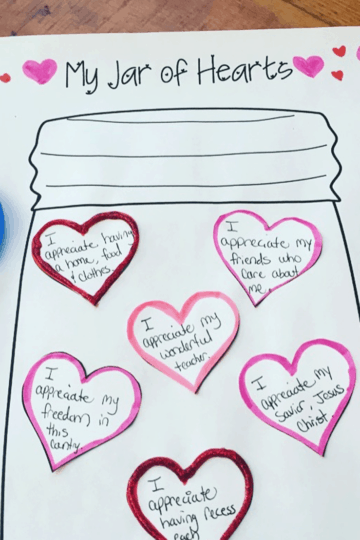 My Jar of Hearts
I
appreciate having
a home, food
& clothes.
I
appreciate my
friends who
care about
me.
I
appreciate my
wonderful
teacher.
I
appreciate my
freedom in
this
I
appreciate my
Savior, Jesus
Christ
I
appreciate
having recess
each